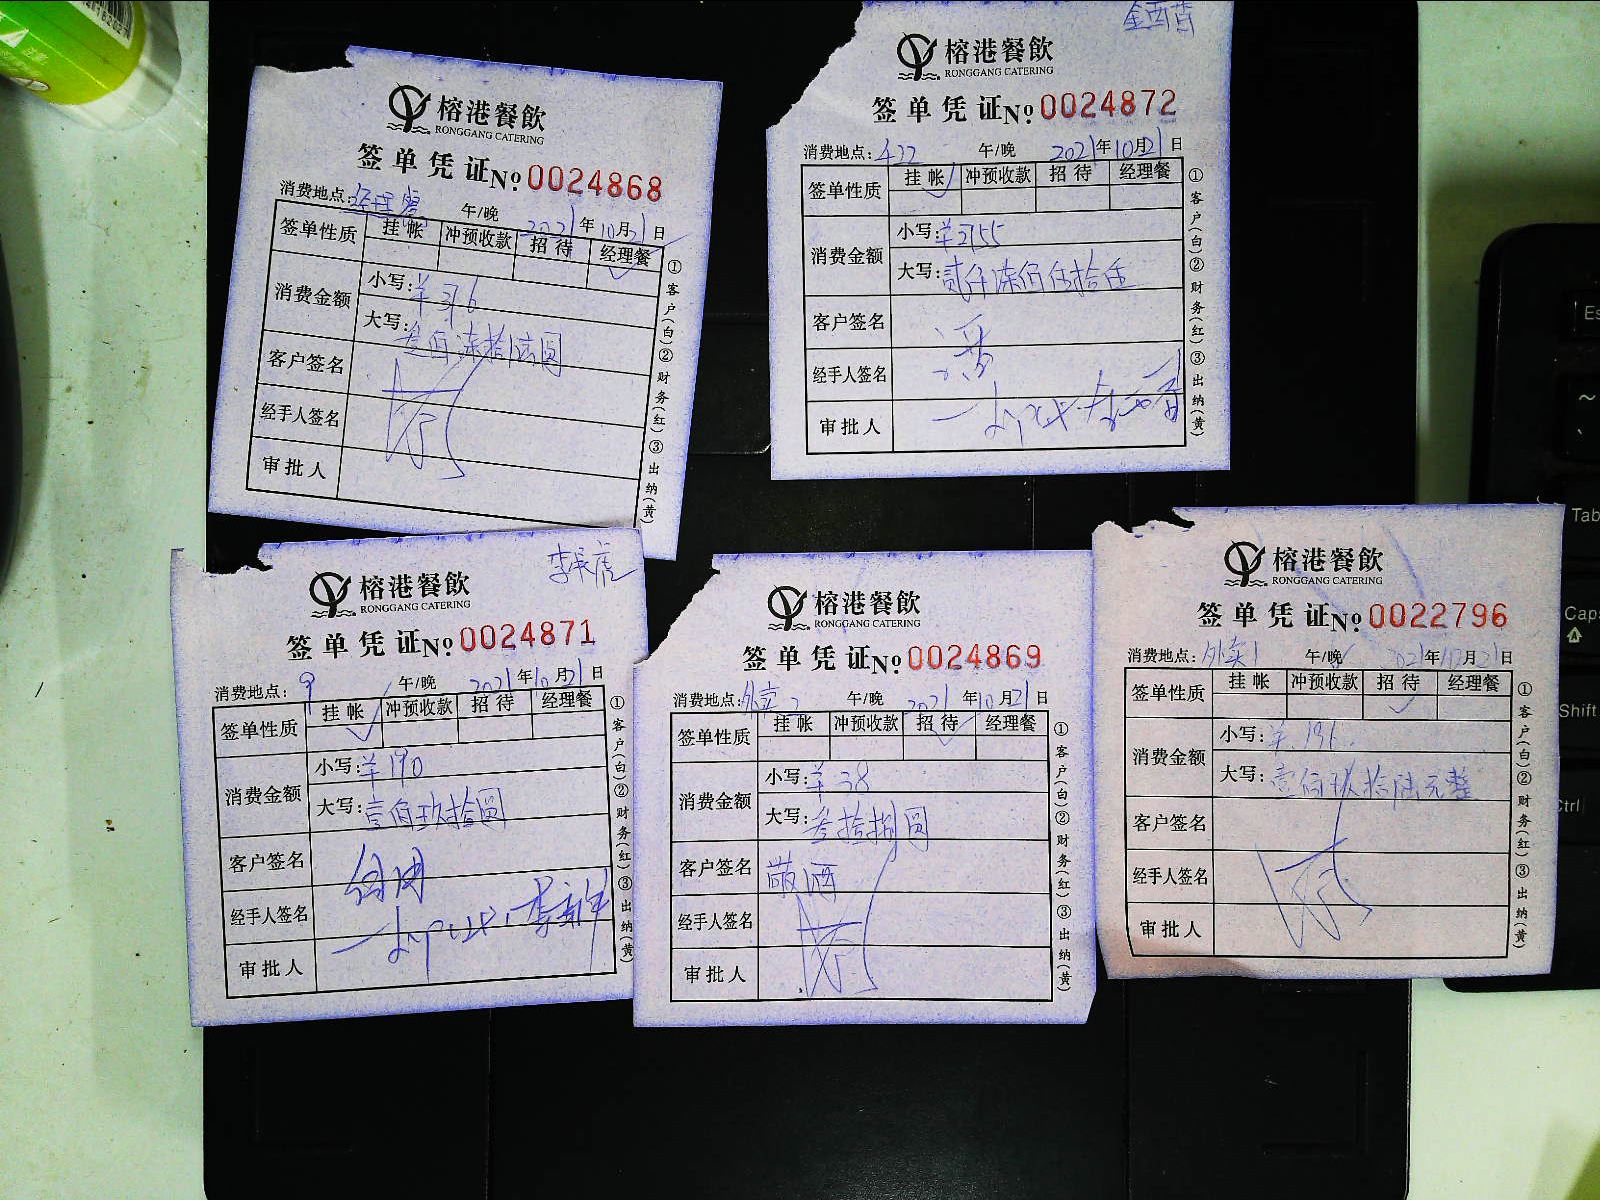 榕港餐飲
RONGGANG CATERING
签单凭证№0024868
消费地点: 午/晚 2021年10月21日
签单性质 挂帐 冲预收款 招待 经理餐
消费金额 小写:羊376
大写:叁佰柒拾陆圆
客户签名
经手人签名
审批人
①客户(白)②财务(红)③出纳(黄)
榕港餐飲
RONGGANG CATERING
签单凭证№0024872
消费地点:422 午/晚 2021年10月21日
签单性质 挂帐 冲预收款 招待 经理餐
消费金额 小写:羊2755
大写:贰仟柒佰伍拾伍
客户签名
经手人签名
审批人
①客户(白)②财务(红)③出纳(黄)
榕港餐飲
RONGGANG CATERING
签单凭证№0024871
消费地点:9 午/晚 2021年10月21日
签单性质 挂帐 冲预收款 招待 经理餐
消费金额 小写:羊190
大写:壹佰玖拾圆
客户签名
经手人签名
审批人
①客户(白)②财务(红)③出纳(黄)
榕港餐飲
RONGGANG CATERING
签单凭证№0024869
消费地点:外卖2 午/晚 2021年10月21日
签单性质 挂帐 冲预收款 招待 经理餐
消费金额 小写:羊38
大写:叁拾捌圆
客户签名 敬酒
经手人签名
审批人
①客户(白)②财务(红)③出纳(黄)
榕港餐飲
RONGGANG CATERING
签单凭证№0022796
消费地点:外卖1 午/晚 2021年10月21日
签单性质 挂帐 冲预收款 招待 经理餐
消费金额 小写:羊196
大写:壹佰玖拾陆元整
客户签名
经手人签名
审批人
①客户(白)②财务(红)③出纳(黄)
Es
Tab
Caps
Shift
Ctrl